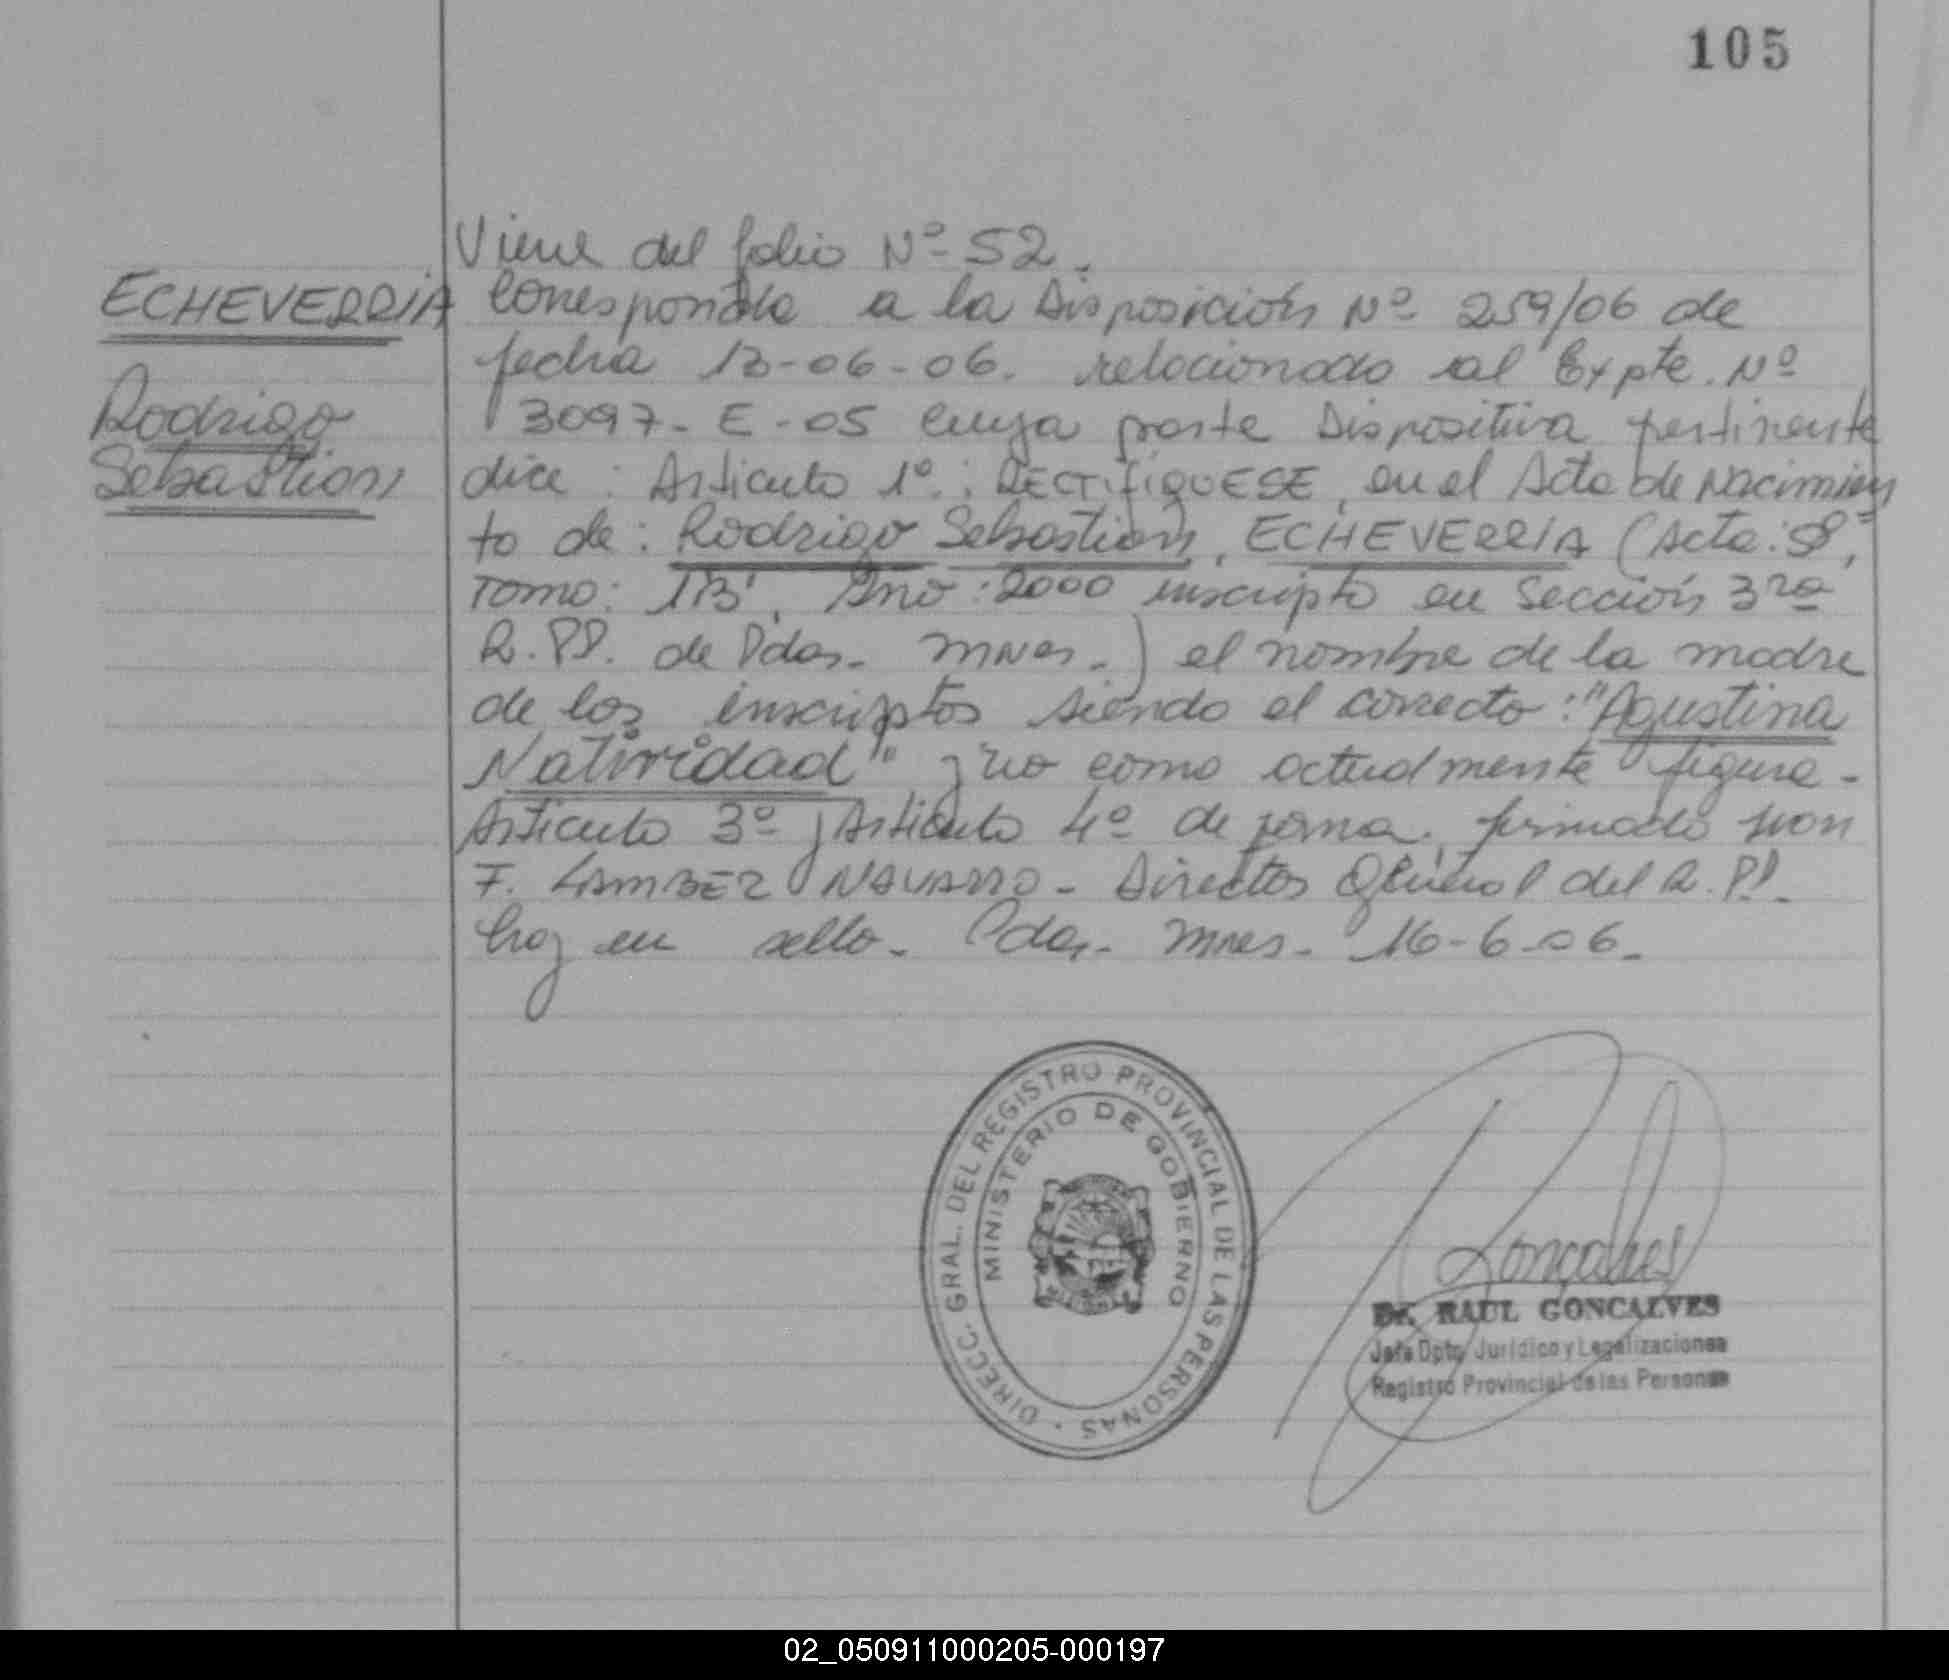 105
Viene del folio Nº 52.
ECHEVERRIA
Rodrigo
Sebastian
Corresponde a la Disposición Nº 259/06 de
fecha 13-06-06. relacionado al Expte. Nº
3097-E-05 cuya parte Dispositiva pertinente
dice: Articulo 1º.: RECTIFIQUESE, en el Acta de Nacimien
to de: Rodrigo Sebastian, ECHEVERRIA (Acta:
Tomo: Año: 2000 inscripto en Sección 3ra
R.PP. de Pdas. Mnes.) el nombre de la madre
de los inscriptos siendo el correcto: "Agustina
Natividad" y no como actualmente figura-
Articulo 3º y Articulo 4º de forma. firmado por
F. LAMBER NAVARRO - Director General del R.PP.
hay un sello. Pdas. Mnes. 16-6-06.
DIRECC. GRAL. DEL REGISTRO PROVINCIAL DE LAS PERSONAS
MINISTERIO DE GOBIERNO
Goncalves
Dr. RAUL GONCALVES
Jefe Dpto Jurídico y Legalizaciones
Registro Provincial de las Personas
02_050911000205-000197